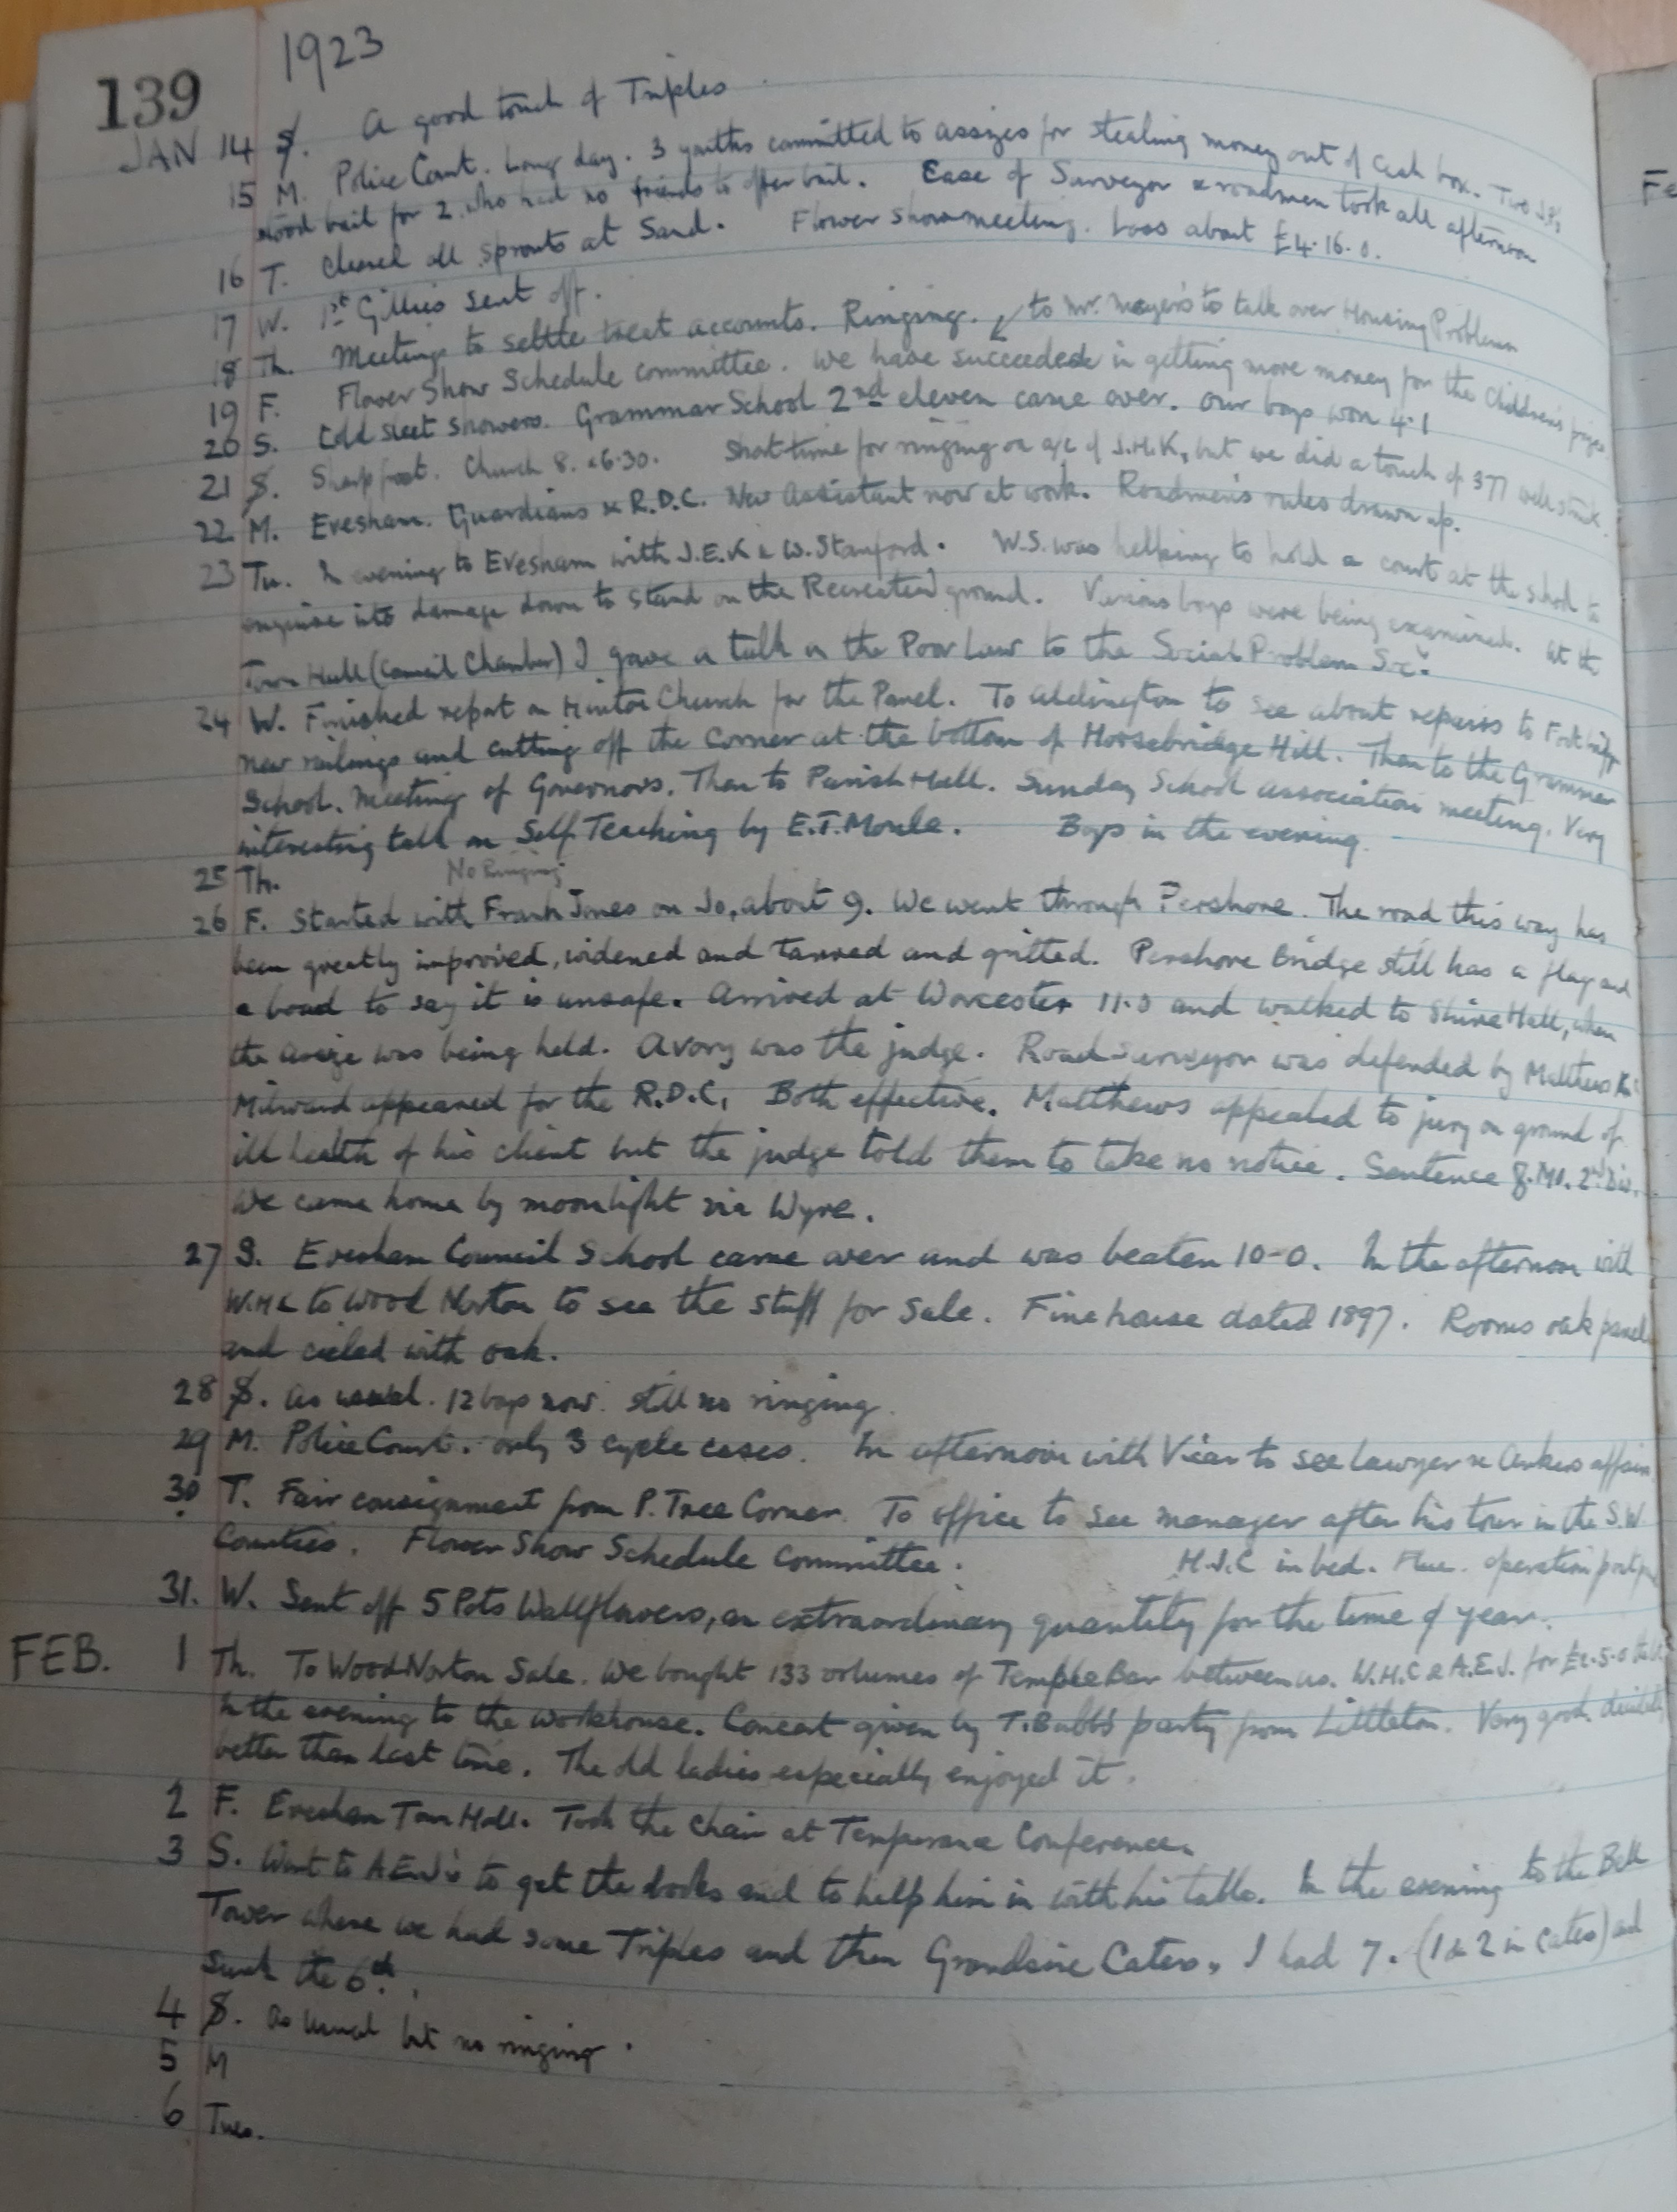 139
1923
JAN 14 S. A good touch of Triples
15 M. Police Court. Long day. 3 youths committed to assizes for stealing money out of Cash box. Two J.P.s
stood bail for 2 who had no friends to offer bail. Case of Surveyor & roadmen took all afternoon
16 T. Cleared all sprouts at Sand. Flower show meeting. Loss about £4.16.0.
17 W. 1st Gillies sent off.
18 Th. Meeting to settle treat accounts. Ringing. to Mr. Mayer's to talk over Housing Problem
19 F. Flower Show Schedule committee. We have succeeded in getting more money for the Children's prizes
20 S. Cold sleet showers. Grammar School 2nd eleven came over. Our boys won 4-1
21 S. Sharp frost. Church 8. & 6.30. Short time for ringing on a/c of J.H.K, but we did a touch of 377 well struck.
22 M. Evesham. Guardians & R.D.C. New Assistant now at work. Roadmen's rules drawn up.
23 Tu. In evening to Evesham with J.E.K & W. Stanford. W.S. was helping to hold a court at the school to
enquire into damage down to stand on the Recreation ground. Various boys were being examined. At the
Town Hall (Council Chamber) I gave a talk on the Poor Law to the Social Problem Soc.
24 W. Finished report on Hinton Church for the Panel. To Aldington to see about repairs to Footbridge
new railings and cutting off the corner at the bottom of Horsebridge Hill. Then to the Grammar
School. Meeting of Governors. Then to Parish Hall. Sunday School Association meeting. Very
interesting talk on Self Teaching by E.T. Moule. Boys in the evening.
25 Th. No Ringing
26 F. Started with Frank Jones on Jo, about 9. We went through Pershore. The road this way has
been greatly improved, widened and tarred and gritted. Pershore Bridge still has a flag and
a board to say it is unsafe. Arrived at Worcester 11.0 and walked to Shire Hall, when
the Assize was being held. Avory was the judge. Road Surveyor was defended by Matthews
Milward appeared for the R.D.C. Both effective. Matthews appealed to jury on ground of
ill health of his client but the judge told them to take no notice. Sentence 8. Mo. 2nd Div.
We came home by moonlight via Wyre.
27 S. Evesham Council School came over and was beaten 10-0. In the afternoon with
W.H.C to Wood Norton to see the stuff for sale. Fine house dated 1897. Rooms oak panel
and cieled with oak.
28 S. As usual. 12 boys now. Still no ringing.
29 M. Police Court. only 3 cycle cases. In afternoon with Vicar to see Lawyer affair
30 T. Fair consignment from P. Tree Corner. To office to see manager after his tour in the S.W.
Counties. Flower Show Schedule Committee. H.J.C in bed. Flue. operation
31. W. Sent off 5 Pots Wallflowers, an extraordinary quantity for the time of year.
FEB. 1 Th. To Wood Norton Sale. We bought 133 volumes of Temple Bar between us. W.H.C & A.E.J. for
In the evening to the workhouse. Concert given by T. Bubb's party from Littleton. Very good. decidedly
better than last time. The old ladies especially enjoyed it.
2 F. Evesham Town Hall. Took the chair at Temperance Conference.
3 S. Went to A.E.J's to get the books and to help him in with his table. In the evening to the Bell
Tower where we had some Triples and then Grandsire Caters. I had 7. (1 & 2 in Cates) and
Sunk the 6th.
4 S. As usual but no ringing.
5 M
6 Tues.